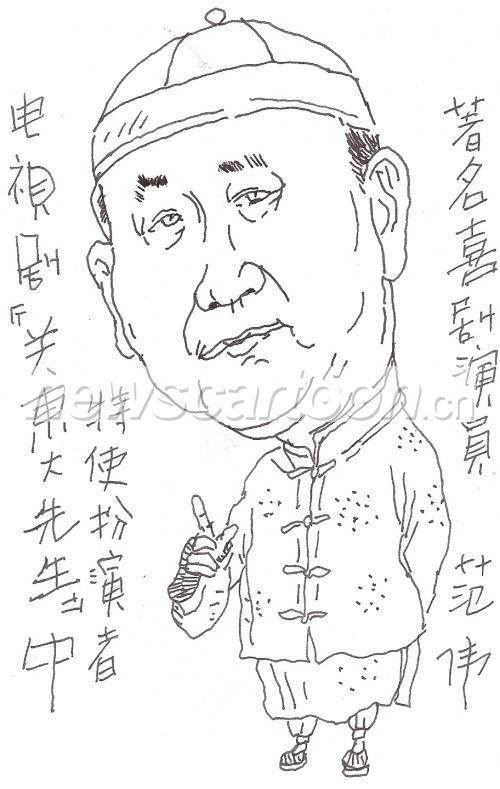 电視剧「关东大先生」中
特使扮演者
著名喜剧演員 范伟
newscartoon.cn